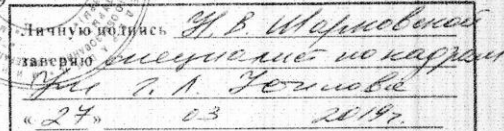 Личную подпись Н. В. Марковской
заверяю специалист по кадрам
Г. Л.
« 27 » 03 2019г.